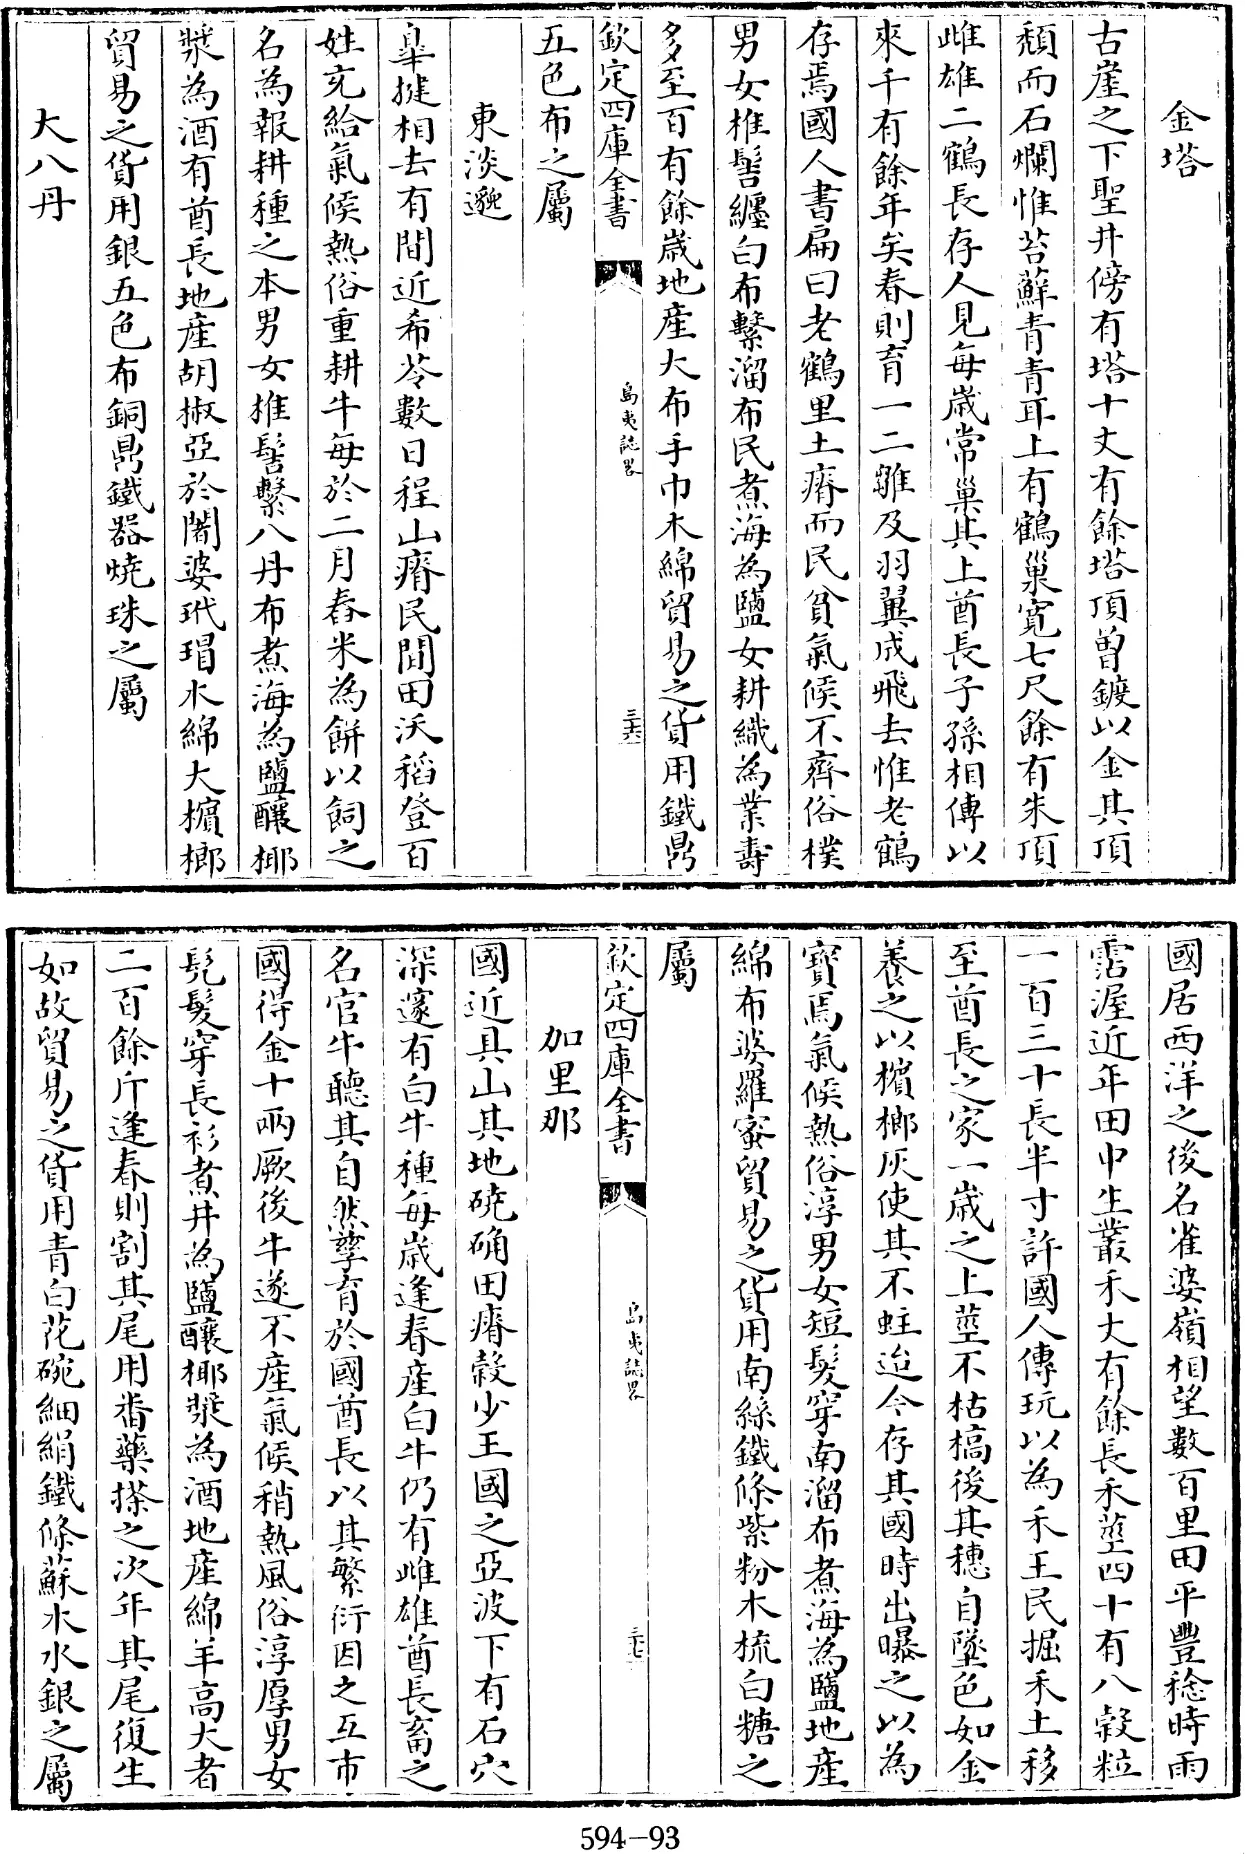 金塔
古崖之下聖井傍有塔十丈有餘塔頂曽鍍以金其頂
頹而石爛惟苔蘚青青耳上有鶴巢寛七尺餘有朱頂
雌雄二鶴長存人見每歲常巢其上酋長子孫相傳以
來千有餘年矣春則育一二雛及羽翼成飛去惟老鶴
存焉國人書扁曰老鶴里土瘠而民貧氣候不齊俗樸
男女椎髻纏白布繫溜布民煮海為鹽女耕織為業壽
多至百有餘歲地產大布手巾木綿貿易之貨用鐵鼎
欽定四庫全書
島夷誌畧
三十六
五色布之屬
東淡邈
皐揵相去有間近希苓數日程山瘠民間田沃稻登百
姓充給氣候熱俗重耕牛每於二月舂米為餅以飼之
名為報耕種之本男女椎髻繫八丹布煮海為鹽釀椰
漿為酒有酋長地產胡椒亞於闍婆玳瑁木綿大檳榔
貿易之貨用銀五色布銅鼎鐵器燒珠之屬
大八丹
國居西洋之後名雀婆嶺相望數百里田平豐稔時雨
霑渥近年田中生叢禾丈有餘長禾莖四十有八穀粒
一百三十長半寸許國人傳玩以為禾王民掘禾土移
至酋長之家一歲之上莖不枯槁後其穗自墜色如金
養之以檳榔灰使其不蛀迨今存其國時出曝之以為
寶焉氣候熱俗淳男女短髮穿南溜布煮海為鹽地產
綿布婆羅蜜貿易之貨用南絲鐵條紫粉木梳白糖之
屬
欽定四庫全書
島夷誌畧
三十七
加里那
國近具山其地磽确田瘠穀少王國之亞波下有石穴
深邃有白牛種每歲逢春產白牛仍有雌雄酋長畜之
名官牛聽其自然孳育於國酋長以其繁衍因之互市
國得金十兩厥後牛遂不產氣候稍熱風俗淳厚男女
髠髮穿長衫煮井為鹽釀椰漿為酒地產綿羊高大者
二百餘斤逢春則割其尾用番藥搽之次年其尾復生
如故貿易之貨用青白花碗細絹鐵條蘇木水銀之屬
594-93